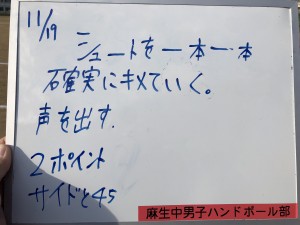 11/19
シュートを一本一本
確実にキメていく。
声を出す.
2ポイント
サイドと45
麻生中男子ハンドボール部